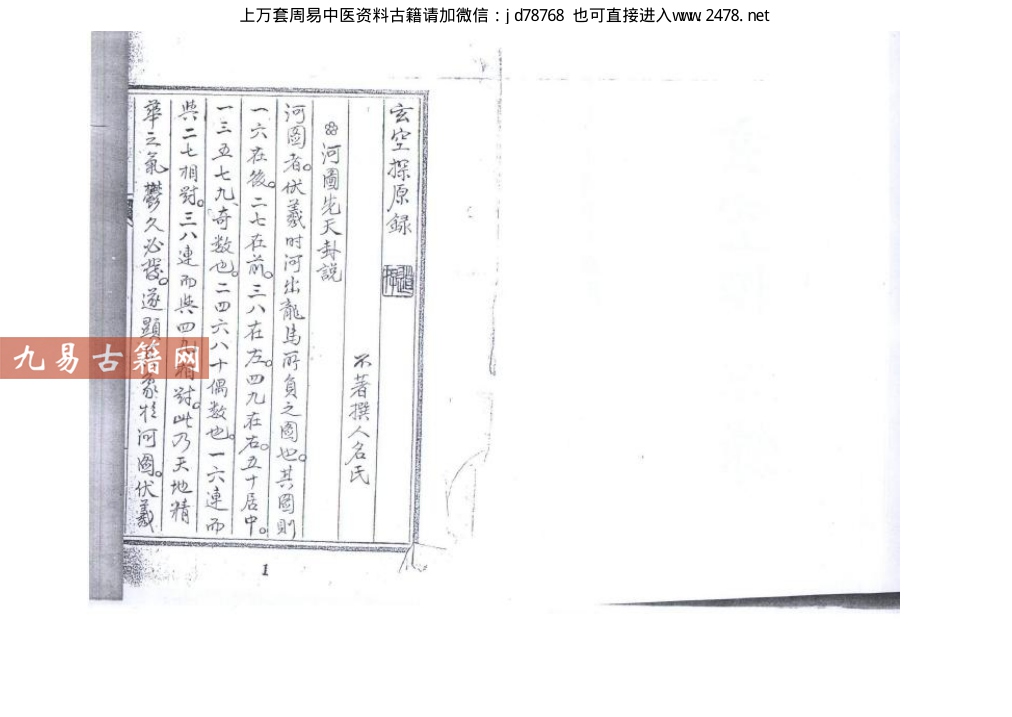 上万套周易中医资料古籍请加微信：jd78768 也可直接进入www.2478.net
玄空探原録
不著撰人名氏
河圖先天卦說
河圖者。伏羲时河出龍馬所負之圖也。其圖則
一六在後。二七在前。三八在左。四九在右。五十居中。
一三五七九、奇数也。二四六八十偶数也。一六連而
與二七相對。三八連而與四九相對。此乃天地精
華之氣鬱久必發。遂顯象於河圖。伏羲
九易古籍网
1